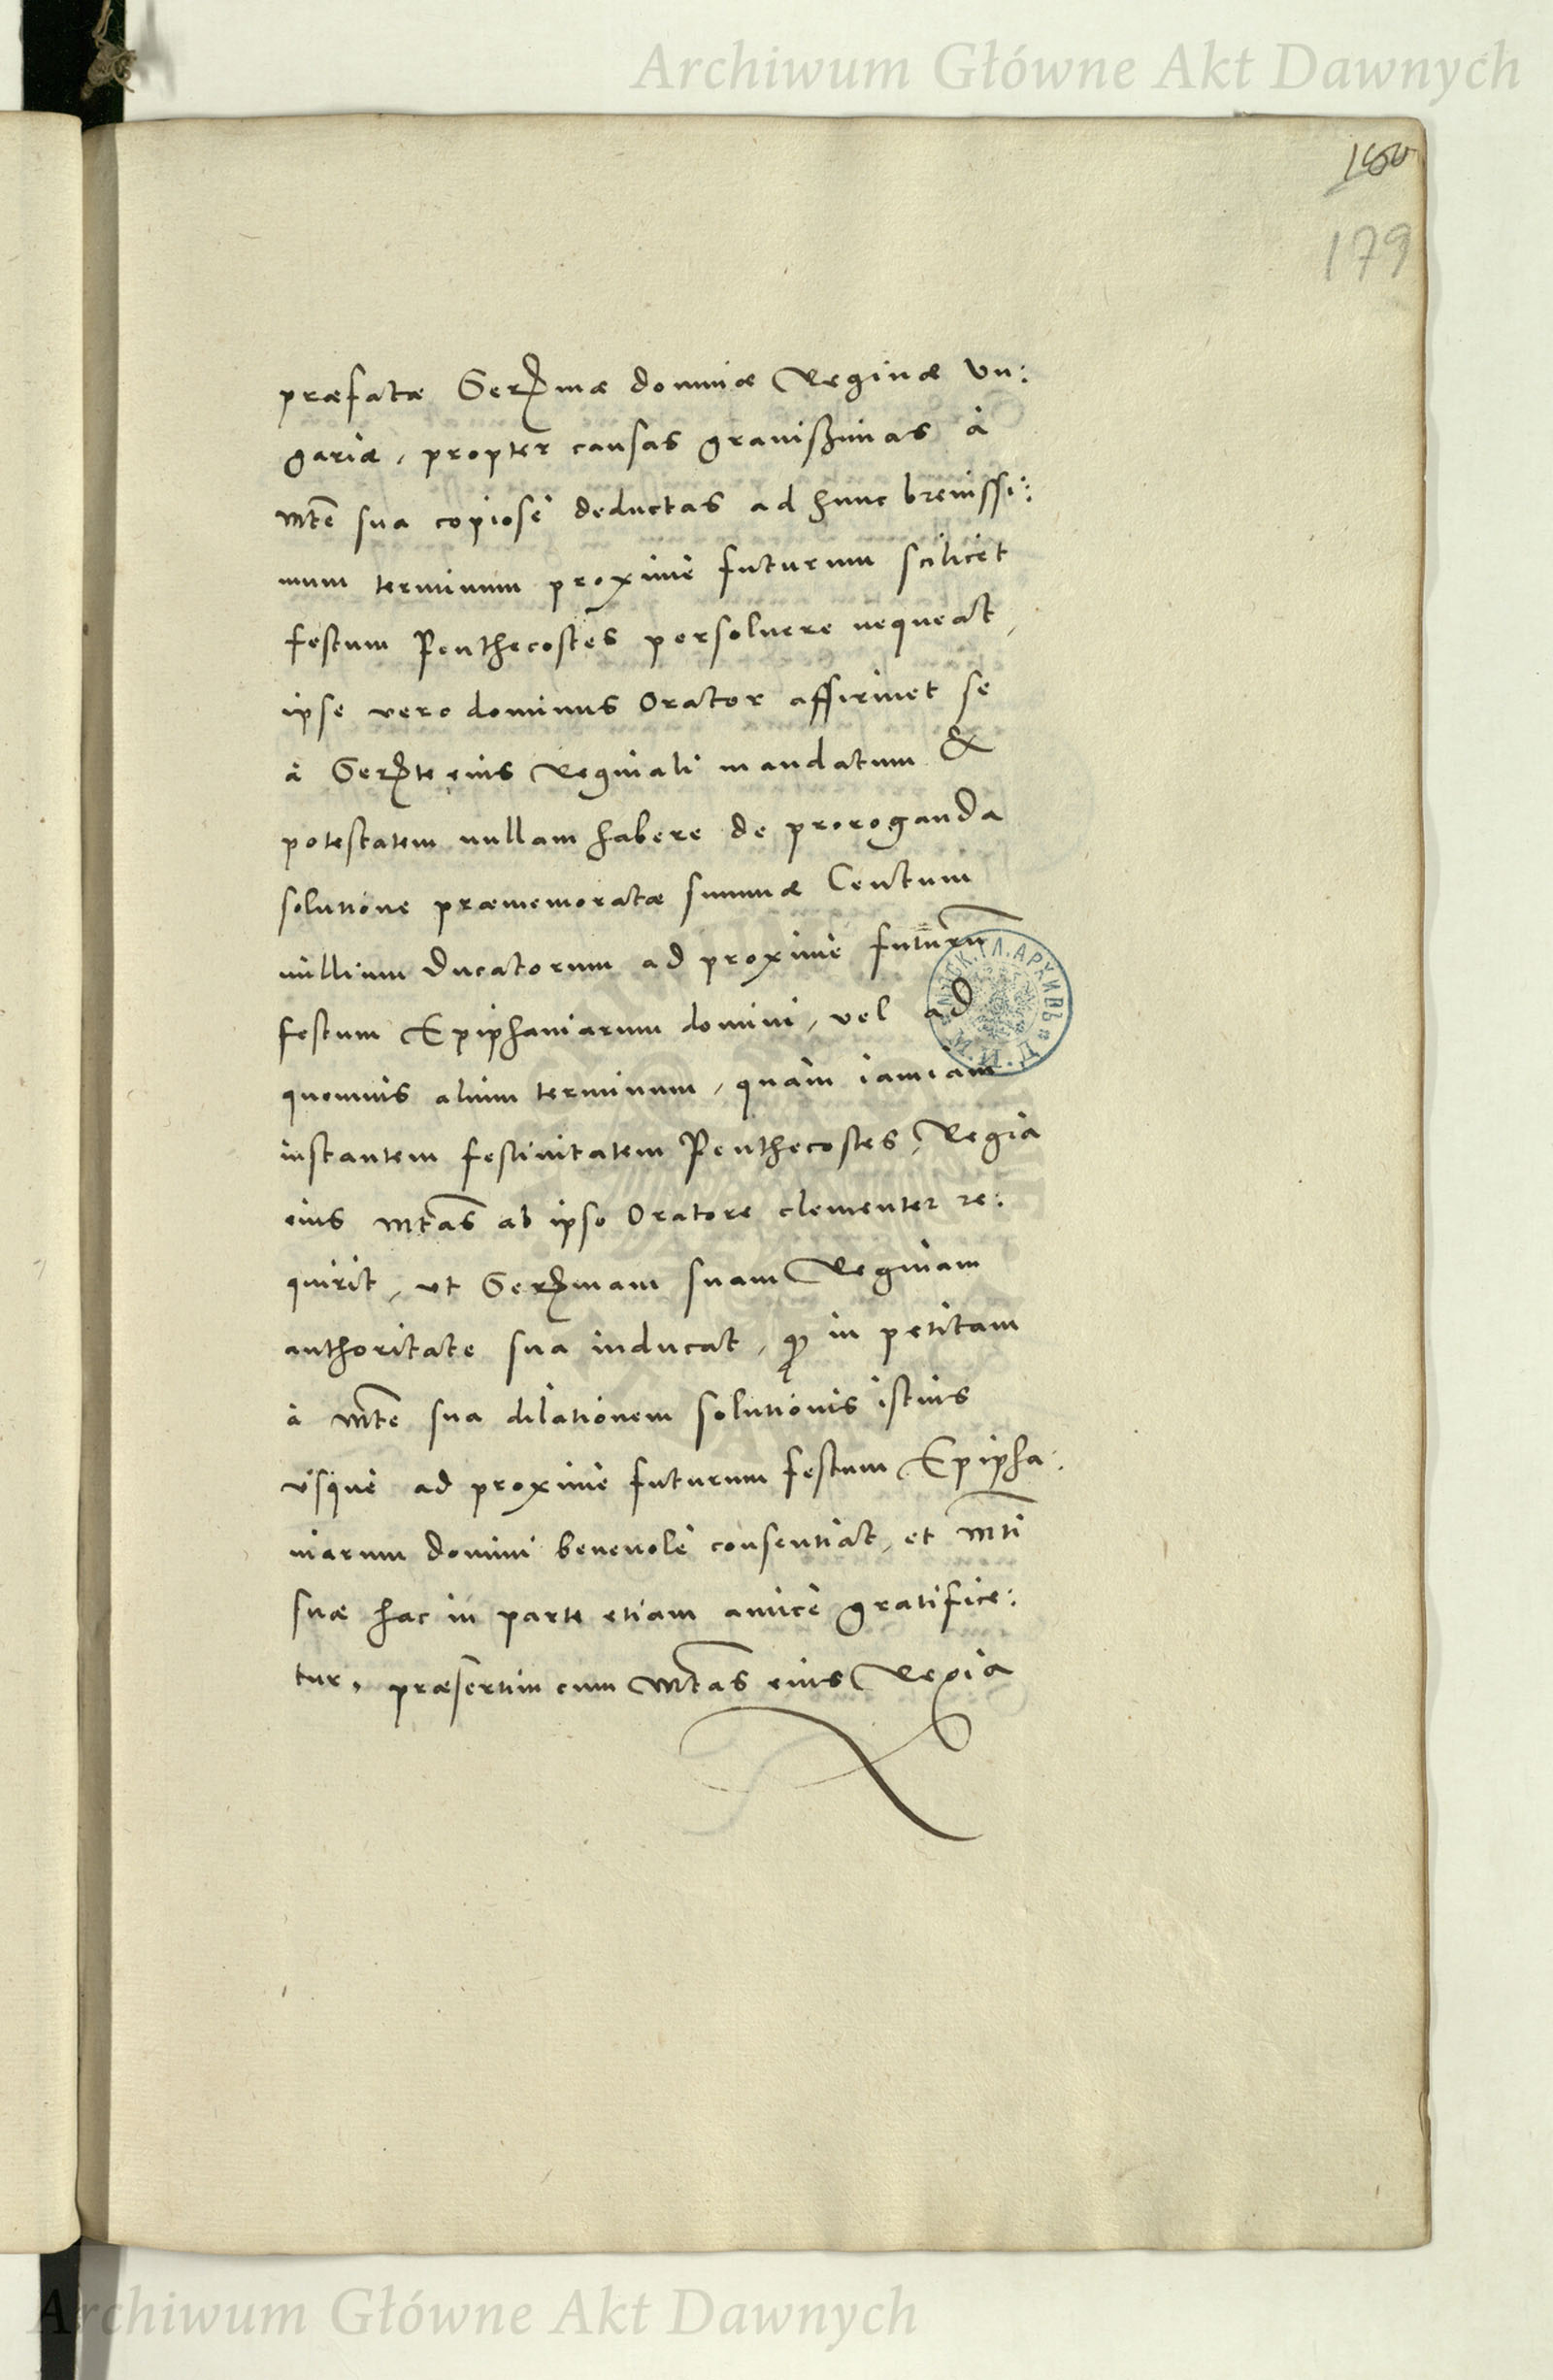 Archiwum Główne Akt Dawnych
179
præfatæ Serꝫmæ dominæ Reginæ Vn:
gariæ, propter causas grauißimas à
Mte sua copiosè deductas ad hunc breuissi:
mum terminum proximè futurum scilicet
festum Penthecostes persoluere nequeat,
ipse vero dominus Orator affirmet se
à Serꝫte eius Reginali mandatum &
potestatem nullam habere de proroganda
solutione præmemoratæ summæ Centum
millium Ducatorum ad proximè futurū
festum Epiphaniarum domini, vel ad
quemuis alium terminum, quàm iamiam
instantem festiuitatem Penthecostes, Regia
eius Mtas ab ipso Oratore clementer re:
quirit, vt Serꝫmam suam Reginam
authoritate sua inducat, ꝙ in petitam
à Mte sua dilationem solutionis istius
vsque ad proximè futurum festum Epipha:
niarum domini beneuolè consentiat, et Mti
suæ hac in parte etiam amicè gratifice:
tur, præsertim cum Mtas eius Regia
Archiwum Główne Akt Dawnych